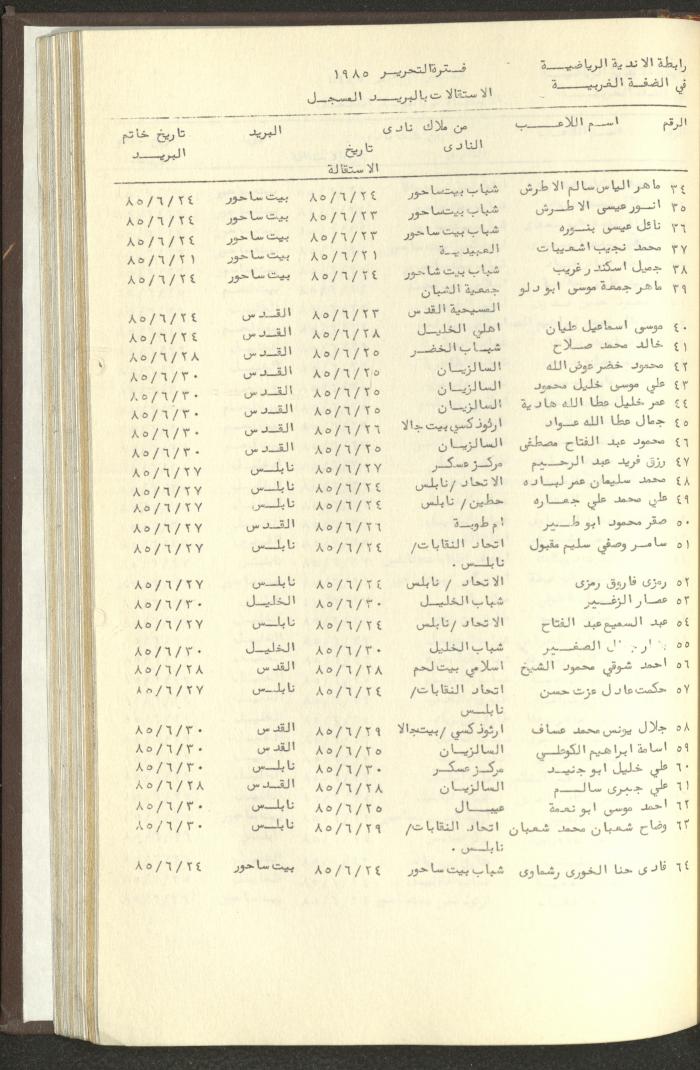 رابطة الاندية الرياضيـــة فــترة التحريــر ١٩٨٥
في الضفة الغربيـــة الاستقالات بالبريــد المسجــل
الرقم اسـم اللاعــب من ملاك نادى البريد تاريخ خاتم
النادى تاريخ البريــد
الاستقالة
٣٤ ماهر الياس سالم الاطرش شباب بيت ساحور ٨٥/٦/٢٤ بيت ساحور ٨٥/٦/٢٤
٣٥ انــور عيسى الاطــرش شباب بيت ساحور ٨٥/٦/٢٣ بيت ساحور ٨٥/٦/٢٤
٣٦ نائل عيسى بنــوره شباب بيت ساحور ٨٥/٦/٢٣ بيت ساحور ٨٥/٦/٢٤
٣٧ محمد نجيب اشعيبات العبيديــة ٨٥/٦/٢١ بيت ساحور ٨٥/٦/٢١
٣٨ جميل اسكندر غريب شباب بيت شاحور ٨٥/٦/٢٤ بيت ساحور ٨٥/٦/٢٤
٣٩ ماهر جمعة موسى ابو دلو جمعية الشبان
المسيحية القدس ٨٥/٦/٢٣ القــدس ٨٥/٦/٢٤
٤٠ موسى اسماعيل طبان اهلي الخليــل ٨٥/٦/٢٨ القــدس ٨٥/٦/٢٤
٤١ خالد محمد صــلاح شبــاب الخضــر ٨٥/٦/٢٥ القــدس ٨٥/٦/٢٨
٤٢ محمود خضر عوض الله السالزيــان ٨٥/٦/٢٥ القــدس ٨٥/٦/٣٠
٤٣ علي موسى خليل محمود السالزيــان ٨٥/٦/٢٥ القــدس ٨٥/٦/٣٠
٤٤ عمر خليل عطا الله هادية السالزيــان ٨٥/٦/٢٥ القــدس ٨٥/٦/٣٠
٤٥ جمال عطا الله عــواد ارثوذكسي بيت جالا ٨٥/٦/٢٦ القــدس ٨٥/٦/٣٠
٤٦ محمود عبد الفتاح مصطفى السالزيــان ٨٥/٦/٢٥ القــدس ٨٥/٦/٣٠
٤٧ رزق فريد عبد الرحــيم مركــز عسكــر ٨٥/٦/٢٧ نابلــس ٨٥/٦/٢٧
٤٨ محمد سليمان عمر لبــاده الاتحاد /نابلس ٨٥/٦/٢٤ نابلــس ٨٥/٦/٢٧
٤٩ علي محمد علي جعــاره حطين/ نابلس ٨٥/٦/٢٤ نابلــس ٨٥/٦/٢٧
٥٠ صقر محمود ابو طــير ام طوبــة ٨٥/٦/٢٦ القــدس ٨٥/٦/٢٧
٥١ سامــر وصفي سليم مقبول اتحاد النقابات/ ٨٥/٦/٢٤ نابلــس ٨٥/٦/٢٧
نابلــس .
٥٢ رمزى فاروق رمزى الاتحاد / نابلس ٨٥/٦/٢٤ نابلــس ٨٥/٦/٢٧
٥٣ عمــار الزغــير شباب الخليــل ٨٥/٦/٣٠ الخليــل ٨٥/٦/٣٠
٥٤ عبد السميع عبد الفتاح الاتحاد /نابلس ٨٥/٦/٢٤ نابلــس ٨٥/٦/٢٧
٥٥ الصغــير شباب الخليل ٨٥/٦/٣٠ الخليــل ٨٥/٦/٣٠
٥٦ احمد شوقي محمود الشيخ اسلامي بيت لحم ٨٥/٦/٢٨ القدس ٨٥/٦/٢٨
٥٧ حكمت عادل عزت حسن اتحاد النقابات/ ٨٥/٦/٢٤ نابلــس ٨٥/٦/٢٧
نابلــس
٥٨ جلال يونس محمد عساف ارثوذكسي /بيت جالا ٨٥/٦/٢٩ القدس ٨٥/٦/٣٠
٥٩ اسامة ابراهيم الكوطــي السالزيــان ٨٥/٦/٢٥ القدس ٨٥/٦/٣٠
٦٠ علي خليل ابو جنيــد مركــز عسكــر ٨٥/٦/٣٠ نابلــس ٨٥/٦/٣٠
٦١ علي جبرى سالــم السالزيــان ٨٥/٦/٢٨ القــدس ٨٥/٦/٢٨
٦٢ احمد موسى ابو نعمة عيبــال ٨٥/٦/٢٥ نابلــس ٨٥/٦/٣٠
٦٣ وضاح شعبان محمد شعبان اتحاد النقابات/ ٨٥/٦/٢٩ نابلــس ٨٥/٦/٣٠
نابلــس .
٦٤ فادى حنا الخورى رشماوى شباب بيت ساحور ٨٥/٦/٢٤ بيت ساحور ٨٥/٦/٢٤